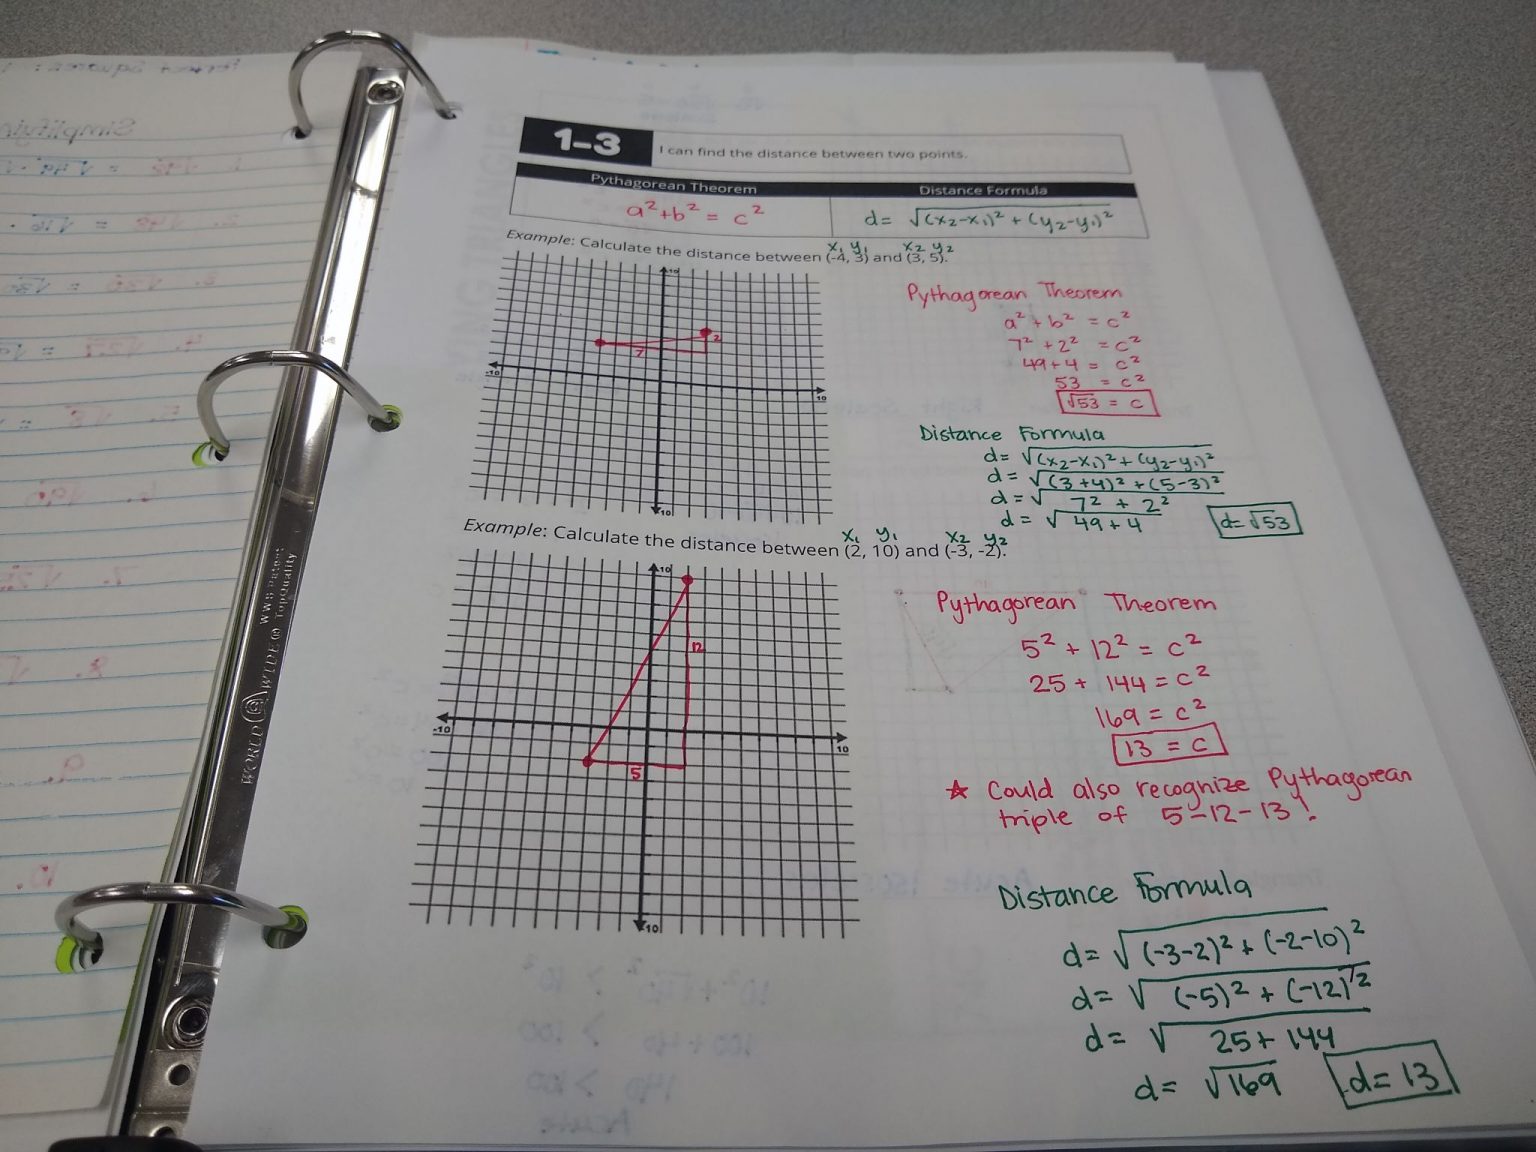 1-3 I can find the distance between two points.
Pythagorean Theorem Distance Formula
a² + b² = c² d = √(x₂-x₁)² + (y₂-y₁)²
x₁ y₁ x₂ y₂
Example: Calculate the distance between (-4, 3) and (3, 5).
10
-10
10
-10
7
2
Pythagorean Theorem
a² + b² = c²
7² + 2² = c²
49 + 4 = c²
53 = c²
√53 = c
Distance Formula
d = √(x₂-x₁)² + (y₂-y₁)²
d = √(3+4)² + (5-3)²
d = √7² + 2²
d = √49 + 4
d = √53
x₁ y₁ x₂ y₂
Example: Calculate the distance between (2, 10) and (-3, -2).
10
-10
10
-10
12
5
Pythagorean Theorem
5² + 12² = c²
25 + 144 = c²
169 = c²
13 = c
★ Could also recognize Pythagorean
triple of 5-12-13!
Distance Formula
d = √(-3-2)² + (-2-10)²
d = √(-5)² + (-12)²
d = √25 + 144
d = √169 d = 13
WORLD WIDE
WWS Patent
TopQuality